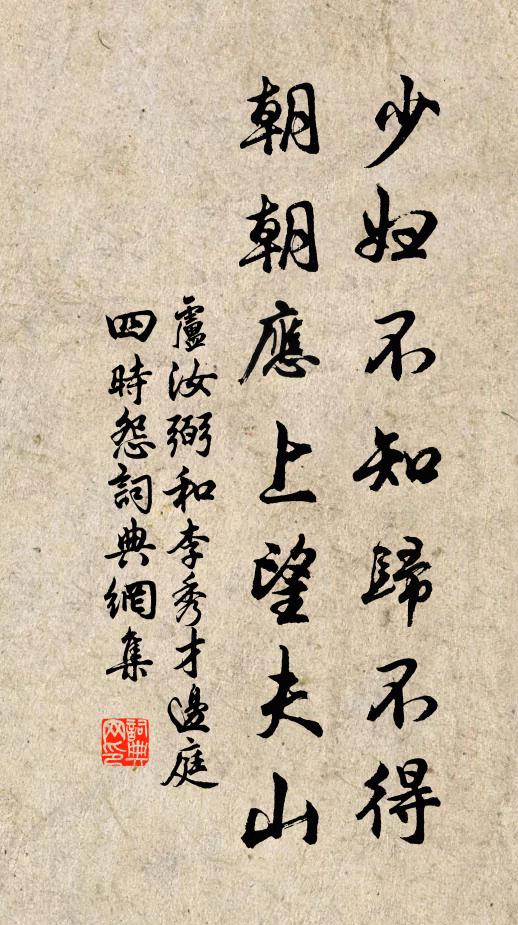 少婦不知歸不得
朝朝應上望夫山
盧汝弼和李秀才邊庭
四時怨詞典網集
詞典
網印